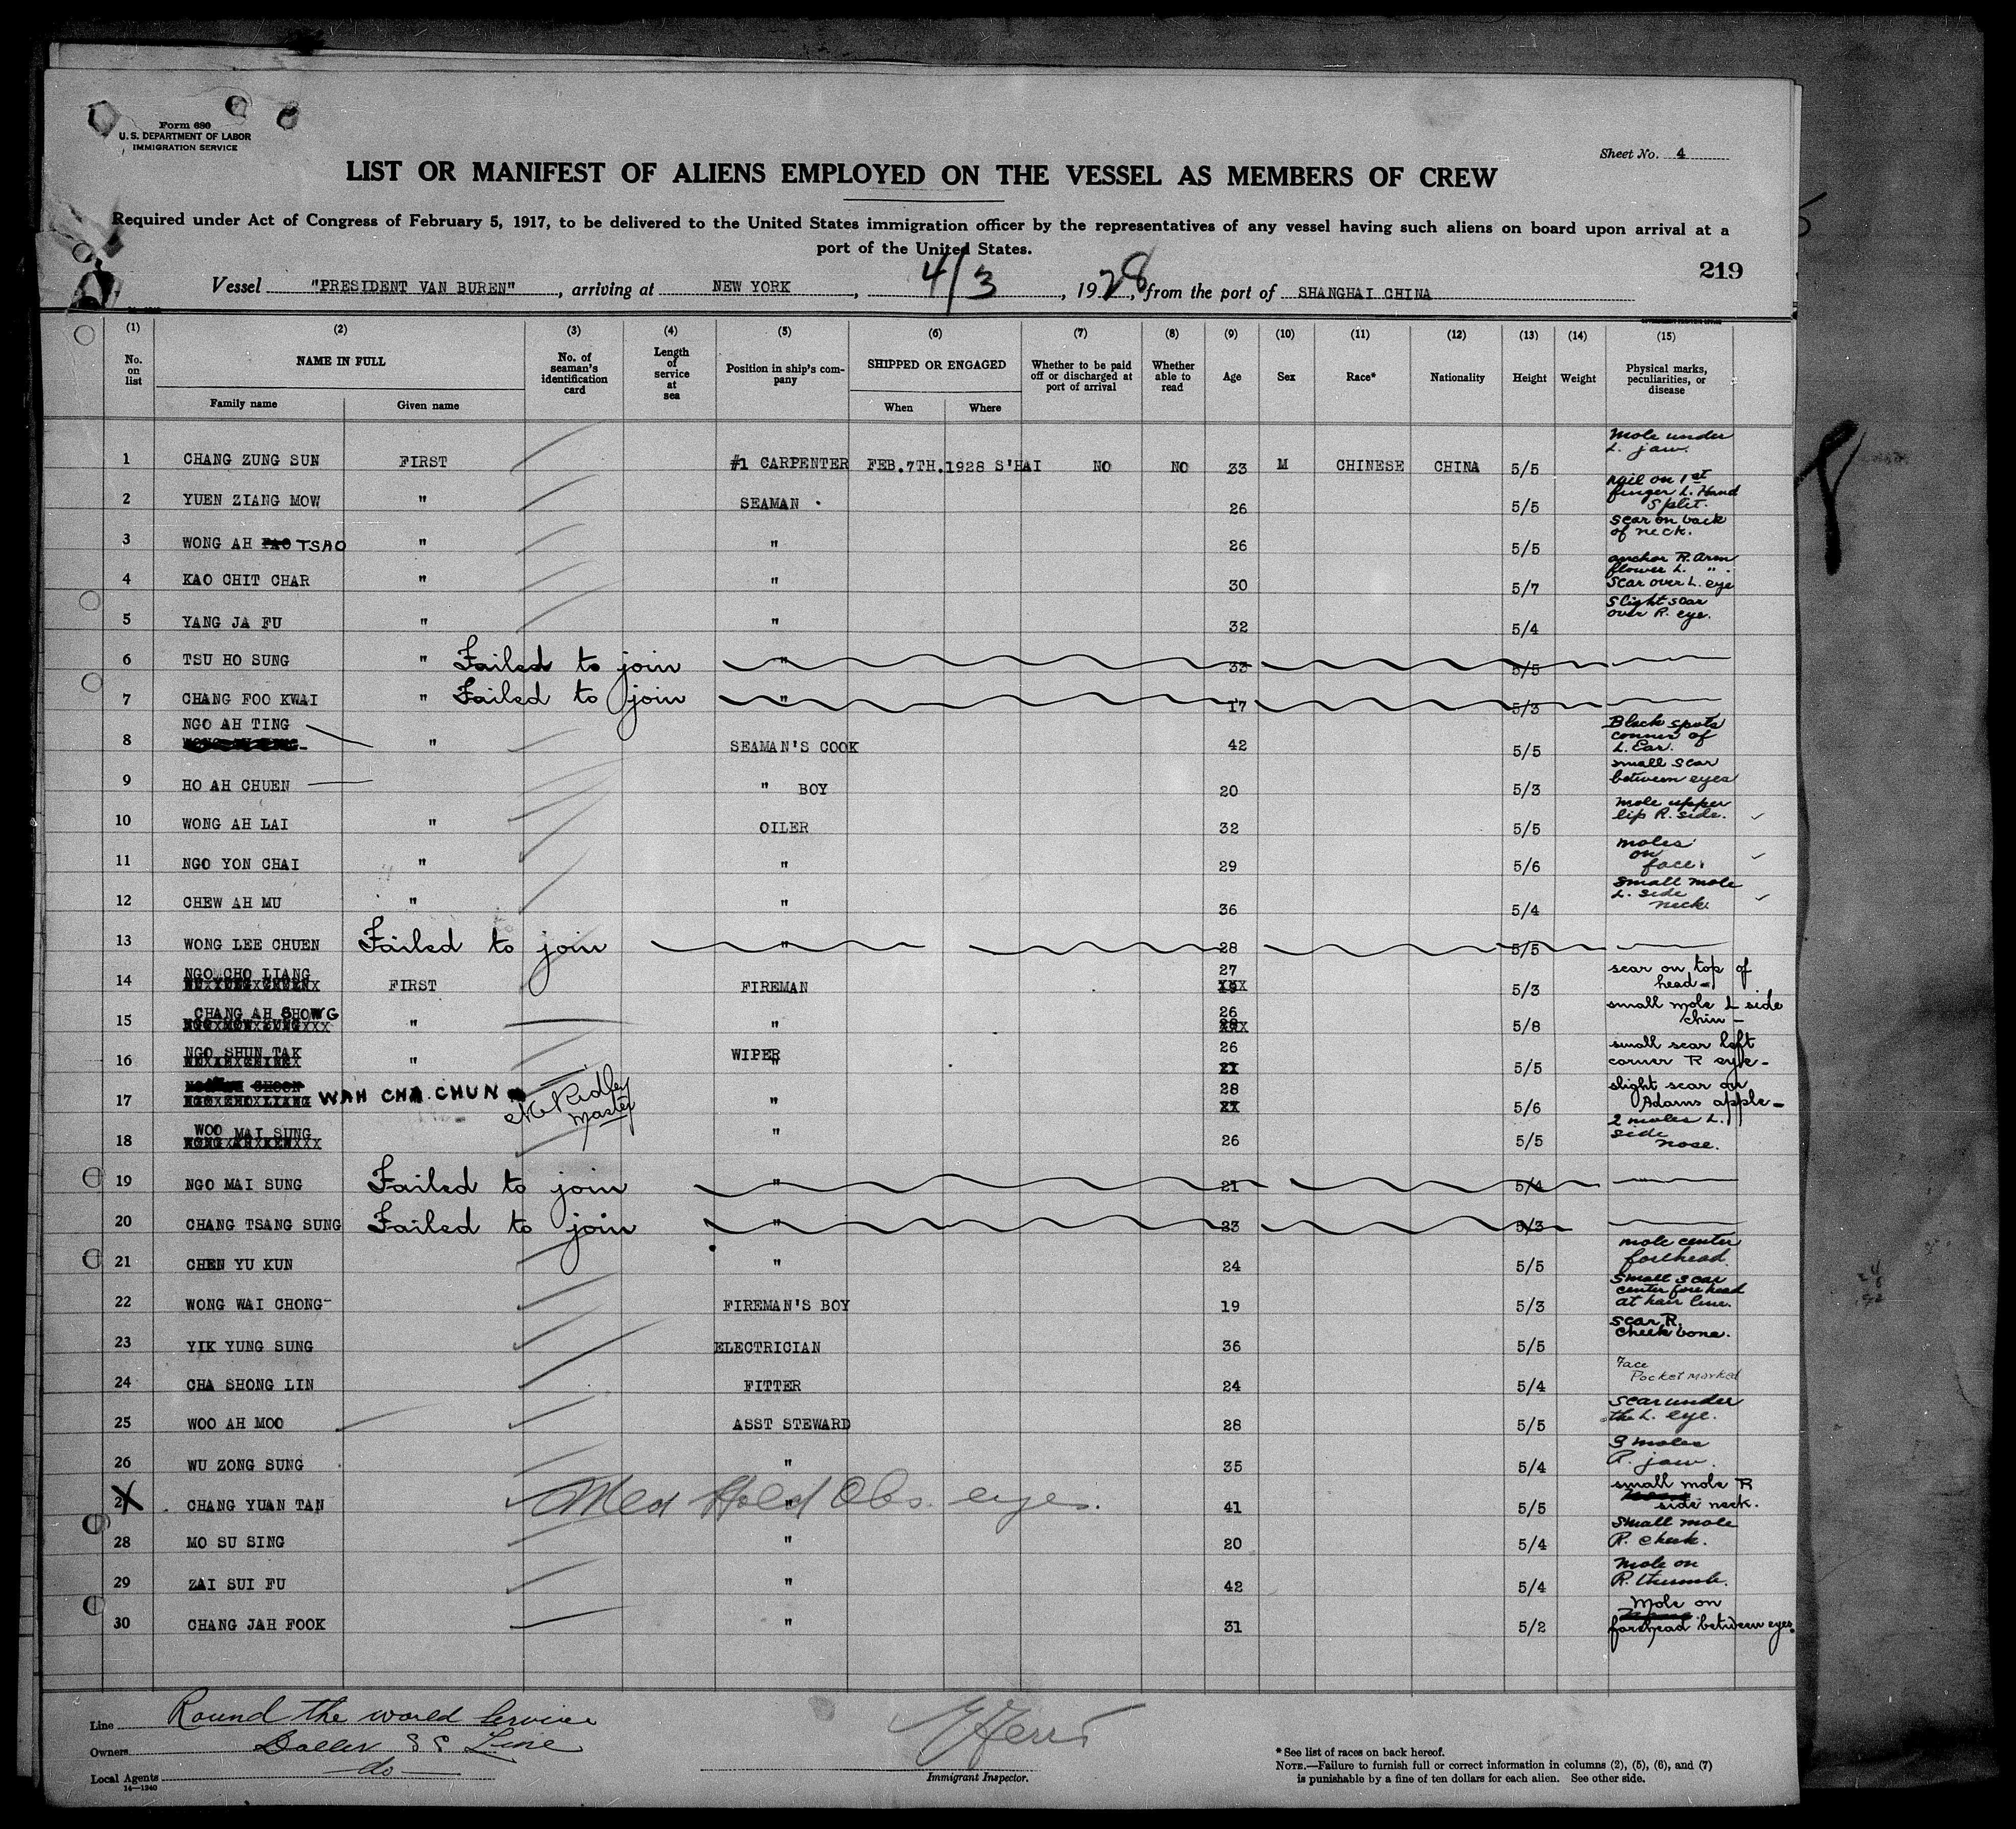 Form 686
U. S. DEPARTMENT OF LABOR
IMMIGRATION SERVICE
Sheet No. 4
LIST OR MANIFEST OF ALIENS EMPLOYED ON THE VESSEL AS MEMBERS OF CREW
Required under Act of Congress of February 5, 1917, to be delivered to the United States immigration officer by the representatives of any vessel having such aliens on board upon arrival at a
port of the United States.
219
Vessel "PRESIDENT VAN BUREN", arriving at NEW YORK, 4/3, 1928, from the port of SHANGHAI CHINA
(1) (2) (3) (4) (5) (6) (7) (8) (9) (10) (11) (12) (13) (14) (15)
No. on list NAME IN FULL Family name Given name No. of seaman's identification card Length of service at sea Position in ship's company SHIPPED OR ENGAGED When Where Whether to be paid off or discharged at port of arrival Whether able to read Age Sex Race* Nationality Height Weight Physical marks, peculiarities, or disease
1 CHANG ZUNG SUN FIRST #1 CARPENTER FEB.7TH.1928 S'HAI NO NO 33 M CHINESE CHINA 5/5 Mole under L. jaw.
2 YUEN ZIANG MOW " SEAMAN 26 5/5 nail on 1st finger L. Hand split.
3 WONG AH TSAO " " 26 5/5 scar on back of neck.
4 KAO CHIT CHAR " " 30 5/7 anchor R. arm flower L. " . Scar over L. eye
5 YANG JA FU " " 32 5/4 Slight scar over R. eye.
6 TSU HO SUNG " Failed to join " 33 5/5
7 CHANG FOO KWAI " Failed to join " 17 5/3
8 NGO AH TING " SEAMAN'S COOK 42 5/5 Black spots corner of L. Ear.
9 HO AH CHUEN " BOY 20 5/3 small scar between eyes
10 WONG AH LAI " OILER 32 5/5 Mole upper lip R. side.
11 NGO YON CHAI " " 29 5/6 moles on face.
12 CHEW AH MU " " 36 5/4 Small mole L. side neck
13 WONG LEE CHUEN Failed to join " 28 5/5
14 NGO CHO LIANG FIRST FIREMAN 27 5/3 scar on top of head-
15 CHANG AH SHOWG " " 26 5/8 small mole L side chin -
16 NGO SHUN TAK " WIPER " 26 21 5/5 small scar left corner R eye-
17 NGO CHO LIANG WAH CHA CHUN Ridley master " 28 5/6 slight scar on Adams apple-
18 WOO MAI SUNG " 26 5/5 2 moles L. side nose.
19 NGO MAI SUNG Failed to join " 21 5/4
20 CHANG TSANG SUNG Failed to join " 23 5/3
21 CHEN YU KUN " 24 5/5 mole center forehead
22 WONG WAI CHONG FIREMAN'S BOY 19 5/3 Small scar center forehead at hair line.
23 YIK YUNG SUNG ELECTRICIAN 36 5/5 scar R. cheek bone.
24 CHA SHONG LIN FITTER 24 5/4 Face Pocket marked
25 WOO AH MOO ASST STEWARD 28 5/5 Scar under the L. eye.
26 WU ZONG SUNG " 35 5/4 3 moles R. jaw.
27 CHANG YUAN TAN Med Hold Obs. eyes. " 41 5/5 small mole R side neck.
28 MO SU SING " 20 5/4 Small mole R. cheek.
29 ZAI SUI FU " 42 5/4 Mole on R. thumb.
30 CHANG JAH FOOK " 31 5/2 Mole on forehead between eyes.
Line Round the world Service
Owners Dollar S S Line
Local Agents do
14-1240
Immigrant Inspector.
* See list of races on back hereof.
NOTE.—Failure to furnish full or correct information in columns (2), (5), (6), and (7)
is punishable by a fine of ten dollars for each alien. See other side.